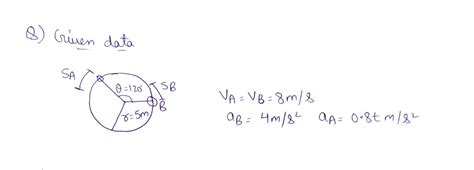 8) Given data
SA
SB
θ=120°
B
r=5m
VA = VB = 8m/s
aB = 4m/s² aA = 0.8t m/s²